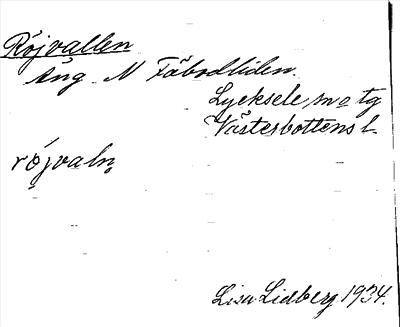 Röjvallen
Äng. N Fäbodliden.
Lycksele, sn o tg
Västerbottens l.
röjvaln
Lisa Lidberg 1934.